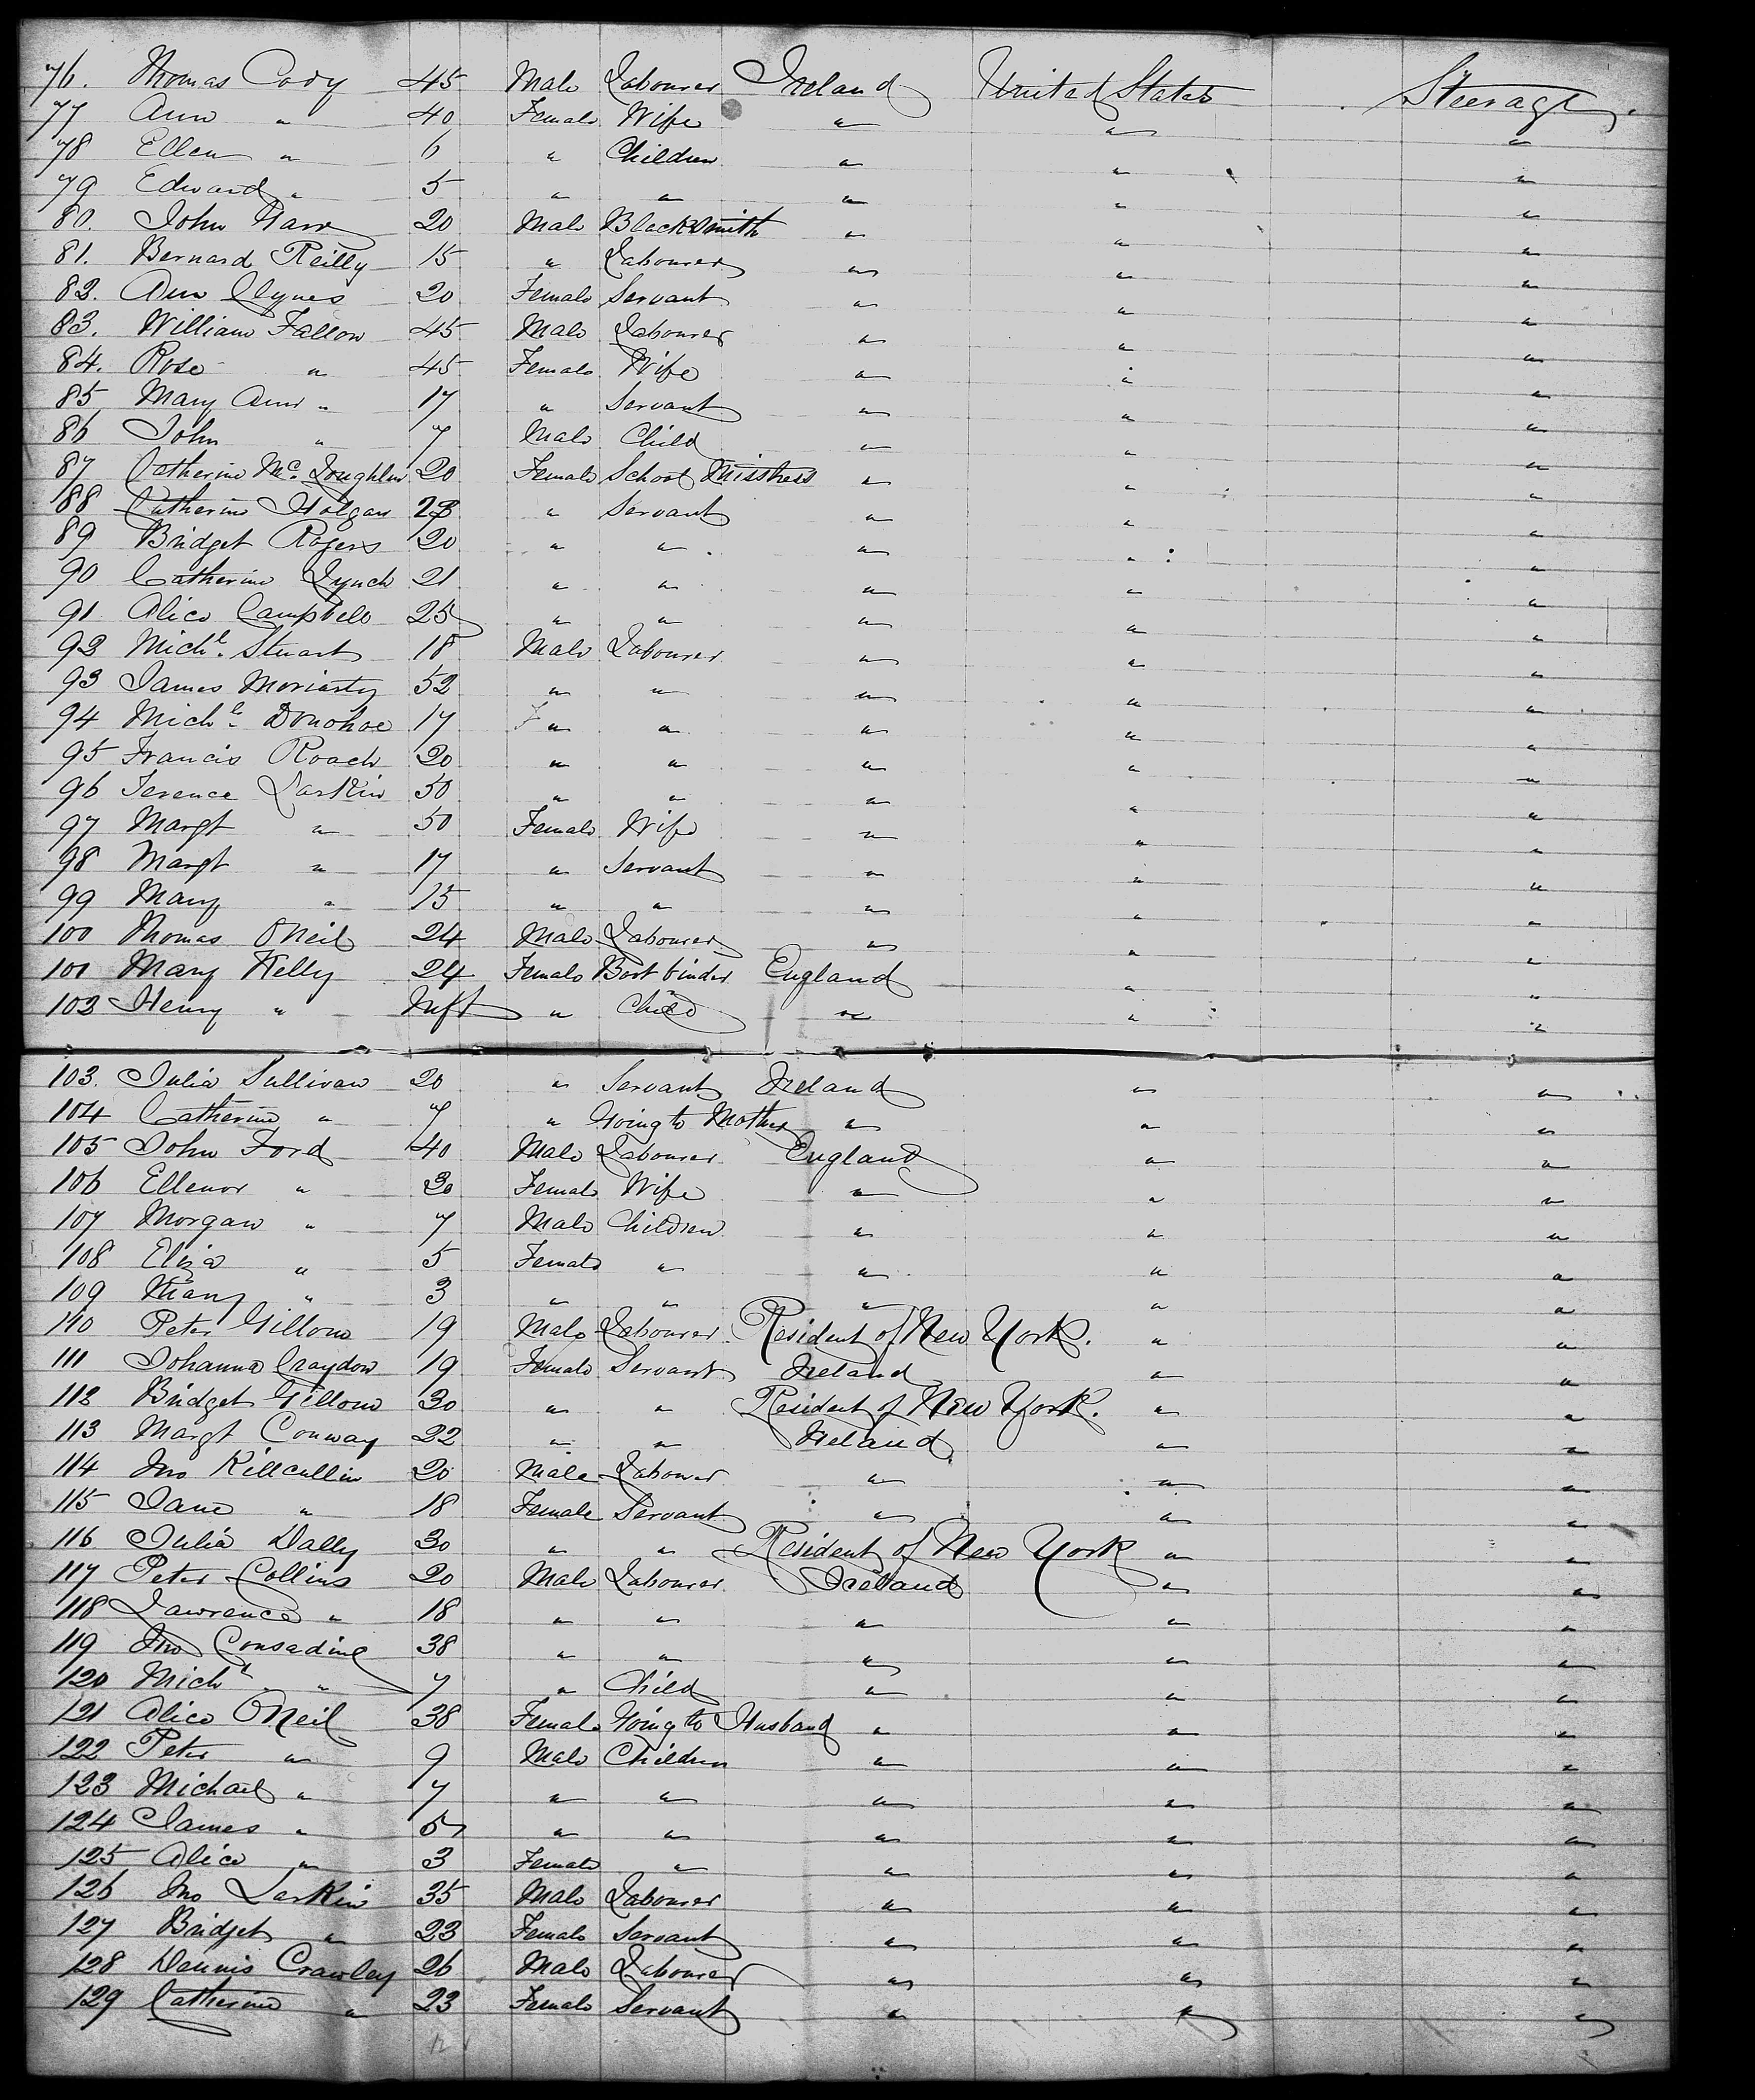 76. Thomas Cody 45 Male Labourer Ireland United States Steerage
77 Ann " 40 Female Wife " " "
78 Ellen " 6 " Children " " "
79 Edward " 5 " " " " "
80. John 20 Male Blacksmith " " "
81. Bernard Reilly 15 " Labourer " " "
82. Ann Clynes 20 Female Servant " " "
83. William Fallon 45 Male Labourer " " "
84. Rose " 45 Female Wife " " "
85 Mary Ann " 17 " Servant " " "
86 John " 7 Male Child " " "
87 Catherine McLoughlin 20 Female School Misstress " " "
88 Catherine Holgan " Servant " " "
89 Bridget Rogers 20 " " " " "
90 Catherine Lynch 21 " " " " "
91 Alice Campbell 25 " " " " "
92 Michl. Stuart 18 Male Labourer " " "
93 James Moriarty 52 " " " " "
94 Michl. Donohoe 17 " " " " "
95 Francis Roach 20 " " " " "
96 Terence Larkin 50 " " " " "
97 Margt " 50 Female Wife " " "
98 Margt " 17 " Servant " " "
99 Mary " 15 " " " " "
100 Thomas O'Neil 24 Male Labourer " " "
101 Mary Kelly 24 Female Boot binder England " "
102 Henry " Inft " Child " " "
103. Julia Sullivan 20 " Servant Ireland " "
104 Catherine " 7 " Going to Mother " " "
105 John Ford 40 Male Labourer England " "
106 Ellenor " 30 Female Wife " " "
107 Morgan " 7 Male Children " " "
108 Eliza " 5 Female " " " "
109 Mary " 3 " " " " "
110 Peter Gillom 19 Male Labourer Resident of New York. " "
111 Johanna Craydon 19 Female Servant Ireland " "
112 Bridget Gillom 30 " " Resident of New York. " "
113 Margt Conway 22 " " Ireland " "
114 Jno Killcullin 20 Male Labourer " " "
115 Jane " 18 Female Servant " " "
116 Julia Dally 30 " " Resident of New York " "
117 Peter Collins 20 Male Labourer Ireland " "
118 Lawrence " 18 " " " " "
119 Jno Consadine 38 " " " " "
120 Michl " 7 " Child " " "
121 Alice O'Neil 38 Female Going to Husband " " "
122 Peter " 9 Male Children " " "
123 Michael " 7 " " " " "
124 James " 5 " " " " "
125 Alice " 3 Female " " " "
126 Jno Larkin 35 Male Labourer " " "
127 Bridget " 23 Female Servant " " "
128 Dennis Crawley 26 Male Labourer " " "
129 Catherine " 23 Female Servant " " "